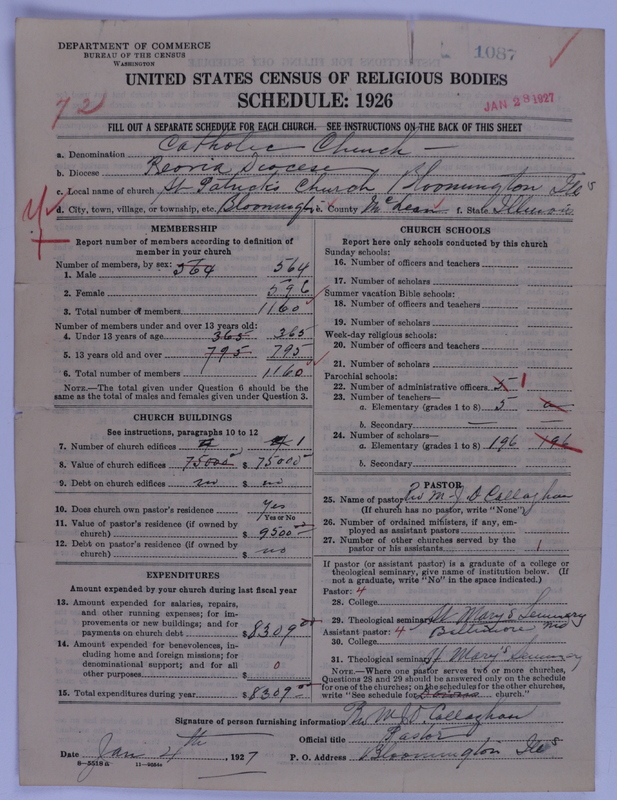 DEPARTMENT OF COMMERCE
BUREAU OF THE CENSUS
WASHINGTON
1087
UNITED STATES CENSUS OF RELIGIOUS BODIES
SCHEDULE: 1926
72
JAN 28 1927
FILL OUT A SEPARATE SCHEDULE FOR EACH CHURCH. SEE INSTRUCTIONS ON THE BACK OF THIS SHEET
a. Denomination Catholic Church
b. Diocese Peoria Diocese
c. Local name of church St Patrick's Church Bloomington Ills
d. City, town, village, or township, etc. Bloomington e. County McLean f. State Illinois
MEMBERSHIP
Report number of members according to definition of
member in your church
Number of members, by sex:
1. Male 564 564
2. Female 596
3. Total number of members 1160
Number of members under and over 13 years old:
4. Under 13 years of age 365 365
5. 13 years old and over 795 795
6. Total number of members 1160
NOTE.—The total given under Question 6 should be the
same as the total of males and females given under Question 3.
CHURCH BUILDINGS
See instructions, paragraphs 10 to 12
7. Number of church edifices 1
8. Value of church edifices 75000 $ 75000
9. Debt on church edifices no $ no
10. Does church own pastor's residence Yes
Yes or No
11. Value of pastor's residence (if owned by
church) $ 9500
12. Debt on pastor's residence (if owned by
church) $ no
EXPENDITURES
Amount expended by your church during last fiscal year
13. Amount expended for salaries, repairs,
and other running expenses; for im-
provements or new buildings; and for
payments on church debt $ 8309
14. Amount expended for benevolences, in-
cluding home and foreign missions; for
denominational support; and for all
other purposes $ 0
15. Total expenditures during year $ 8309
CHURCH SCHOOLS
Report here only schools conducted by this church
Sunday schools:
16. Number of officers and teachers
17. Number of scholars
Summer vacation Bible schools:
18. Number of officers and teachers
19. Number of scholars
Week-day religious schools:
20. Number of officers and teachers
21. Number of scholars
Parochial schools:
22. Number of administrative officers 5 1
23. Number of teachers—
a. Elementary (grades 1 to 8) 5
b. Secondary
24. Number of scholars—
a. Elementary (grades 1 to 8) 196 196
b. Secondary
PASTOR
25. Name of pastor Rev M. J. O Callaghan
(If church has no pastor, write "None")
26. Number of ordained ministers, if any, em-
ployed as assistant pastors
27. Number of other churches served by the
pastor or his assistants 1
If pastor (or assistant pastor) is a graduate of a college or
theological seminary, give name of institution below. (If
not a graduate, write "No" in the space indicated.)
Pastor: 4
28. College
29. Theological seminary St Mary's Seminary
Assistant pastor: 4 Baltimore, Md
30. College
31. Theological seminary St Mary's Seminary
NOTE.—Where one pastor serves two or more churches,
Questions 28 and 29 should be answered only on the schedule
for one of the churches; on the schedules for the other churches,
write "See schedule for church."
Signature of person furnishing information Rev M. J. O. Callaghan
Official title Pastor
Date Jan 4th, 1927 P. O. Address Bloomington Ills
8—5518a